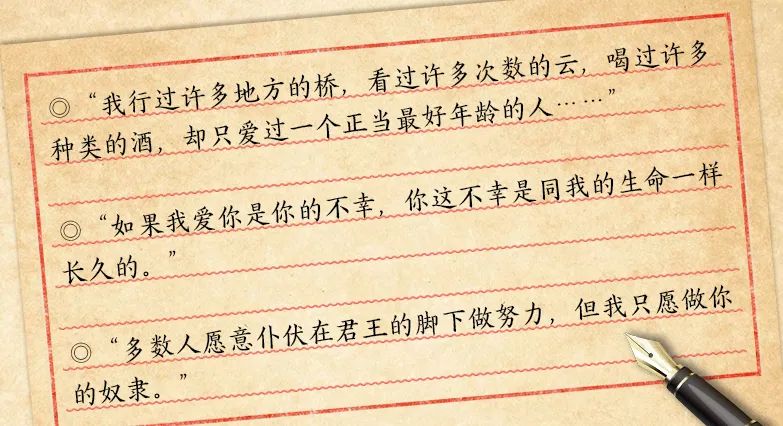 ◎ “我行过许多地方的桥，看过许多次数的云，喝过许多
种类的酒，却只爱过一个正当最好年龄的人……”
◎ “如果我爱你是你的不幸，你这不幸是同我的生命一样
长久的。”
◎ “多数人愿意仆伏在君王的脚下做努力，但我只愿做你
的奴隶。”